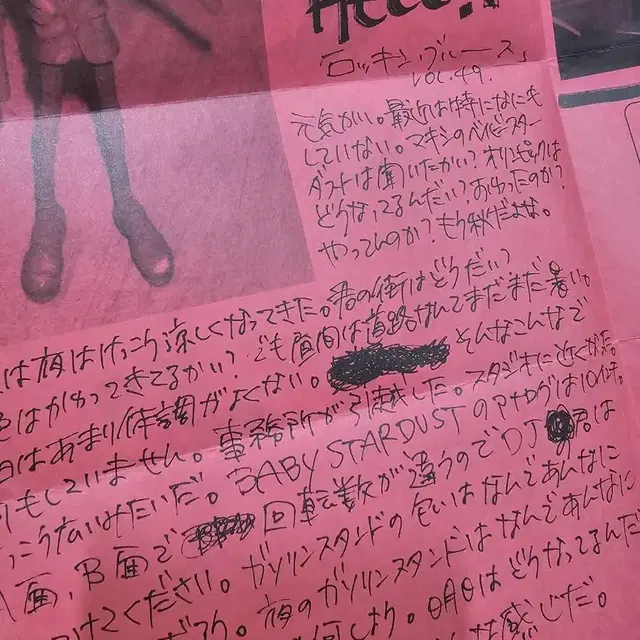 Hello!!
「ロッキンブルース」
VOL.49.
元気かい。最近は特になにも
していない。マキシのベイビースター
ダストは聞いたかい?オリンピックは
どうなってるんだい?おわったのか?
やってんのか?もう秋だよな。
は夜はけっこう涼しくなってきた。君の街はどうだい?
色はかわってきてるかい?でも昼間は道路なんてまだまだ暑い。
日はあまり体調がよくない。そんなこんなで
もしていません。事務所が引越した。スタジオに近くなった。
っこう広いみたいだ。BABY STARDUSTのアナログは10インチ。
面、B面で 回転数が違うのでDJ 君は
けてください。ガソリンスタンドの匂いはなんであんなに
だろう。夜のガソリンスタンドはなんであんなに
何しよう。明日はどうなってるんだ
な感じだ。